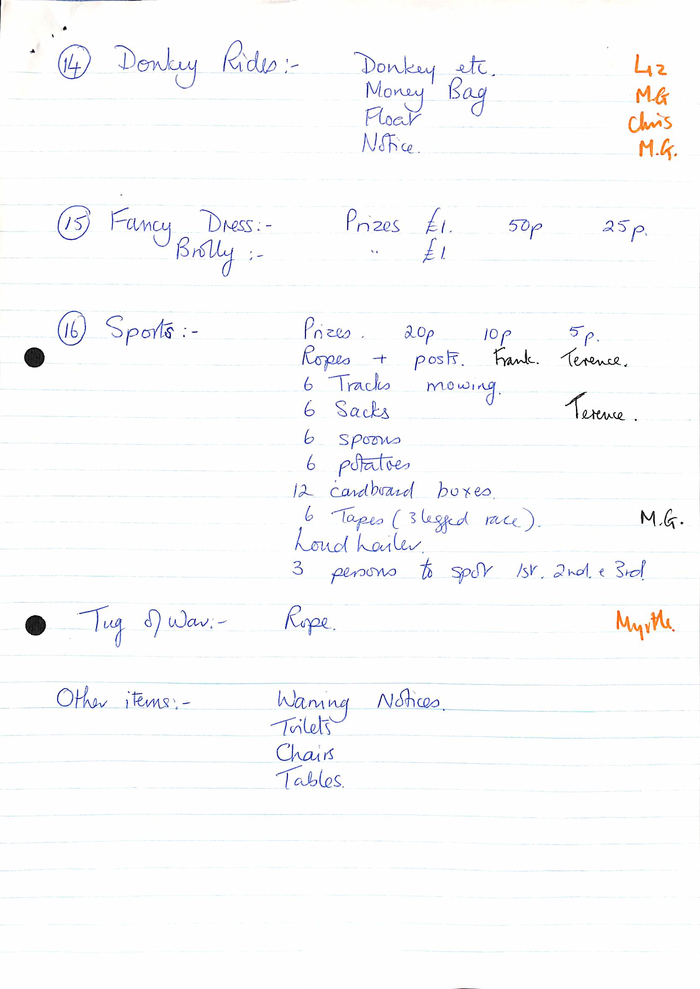 14 Donkey Rides:- Donkey etc. Liz
Money Bag M.G
Float Chris
Notice. M.G.
15 Fancy Dress:- Prizes £1. 50p 25p.
Brolly:- " £1
16 Sports:- Prizes. 20p 10p 5p.
Ropes + posts. Frank. Terence.
6 Tracks mowing.
6 Sacks Terence.
6 spoons
6 potatoes
12 cardboard boxes.
6 Tapes (3 legged race). M.G.
Loud hailer.
3 persons to spot 1st. 2nd. & 3rd.
Tug of War:- Rope. Myrtle.
Other items:- Warning Notices.
Toilets
Chairs
Tables.